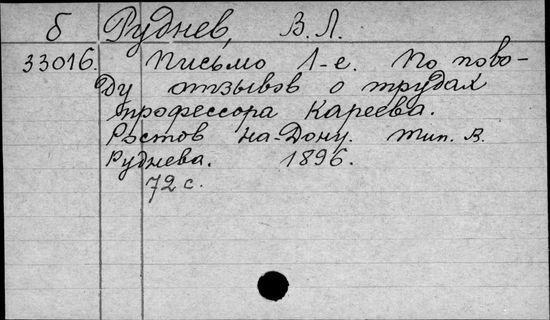 б Руднев, В. Л.
33016. Письмо 1-е. По пово-
ду отзывов о трудах
профессора Кареева.
Ростов на-Дону. Тип. В.
Руднева. 1896.
72 с.